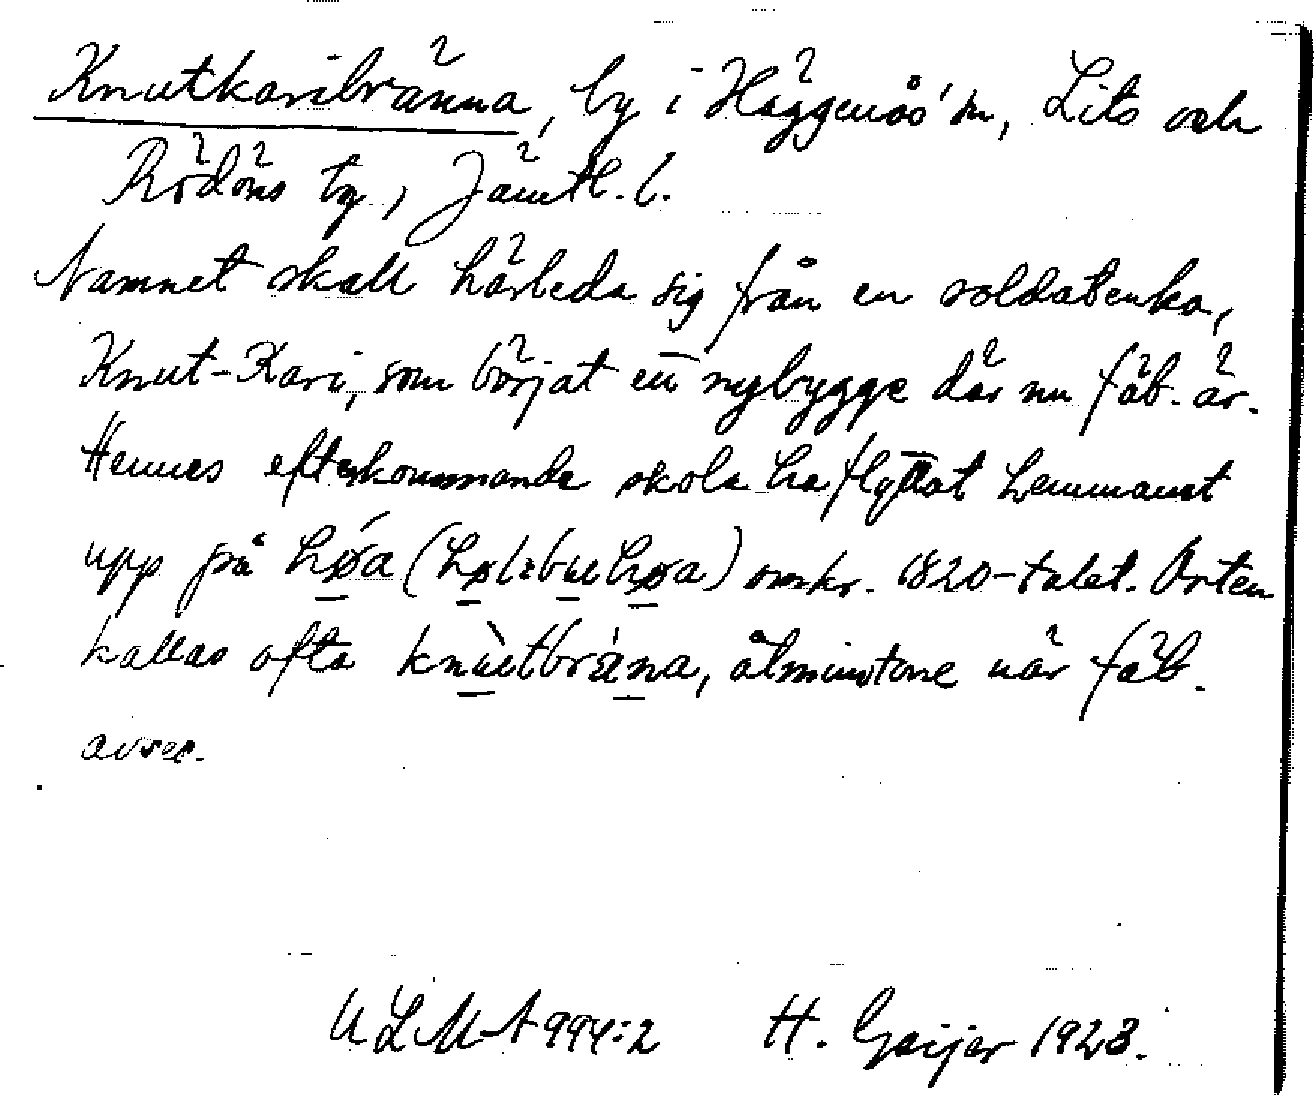 Knutkaribränna, by i Häggenås' sn, Lits och
Rödöns tg., Jämtl. l.
Namnet skall härleda sig från en soldatenka,
Knut-Kari, som börjat ett nybygge där nu fäb. är.
Hennes efterkommande skola ha flyttat hemmanet
upp på høa (hølebuehøa) omkr. 1820-talet. Orten
kallas ofta knùtbräna, åtminstone när fäb.
avses.
ULMA 994:2 H. Geijer 1923.